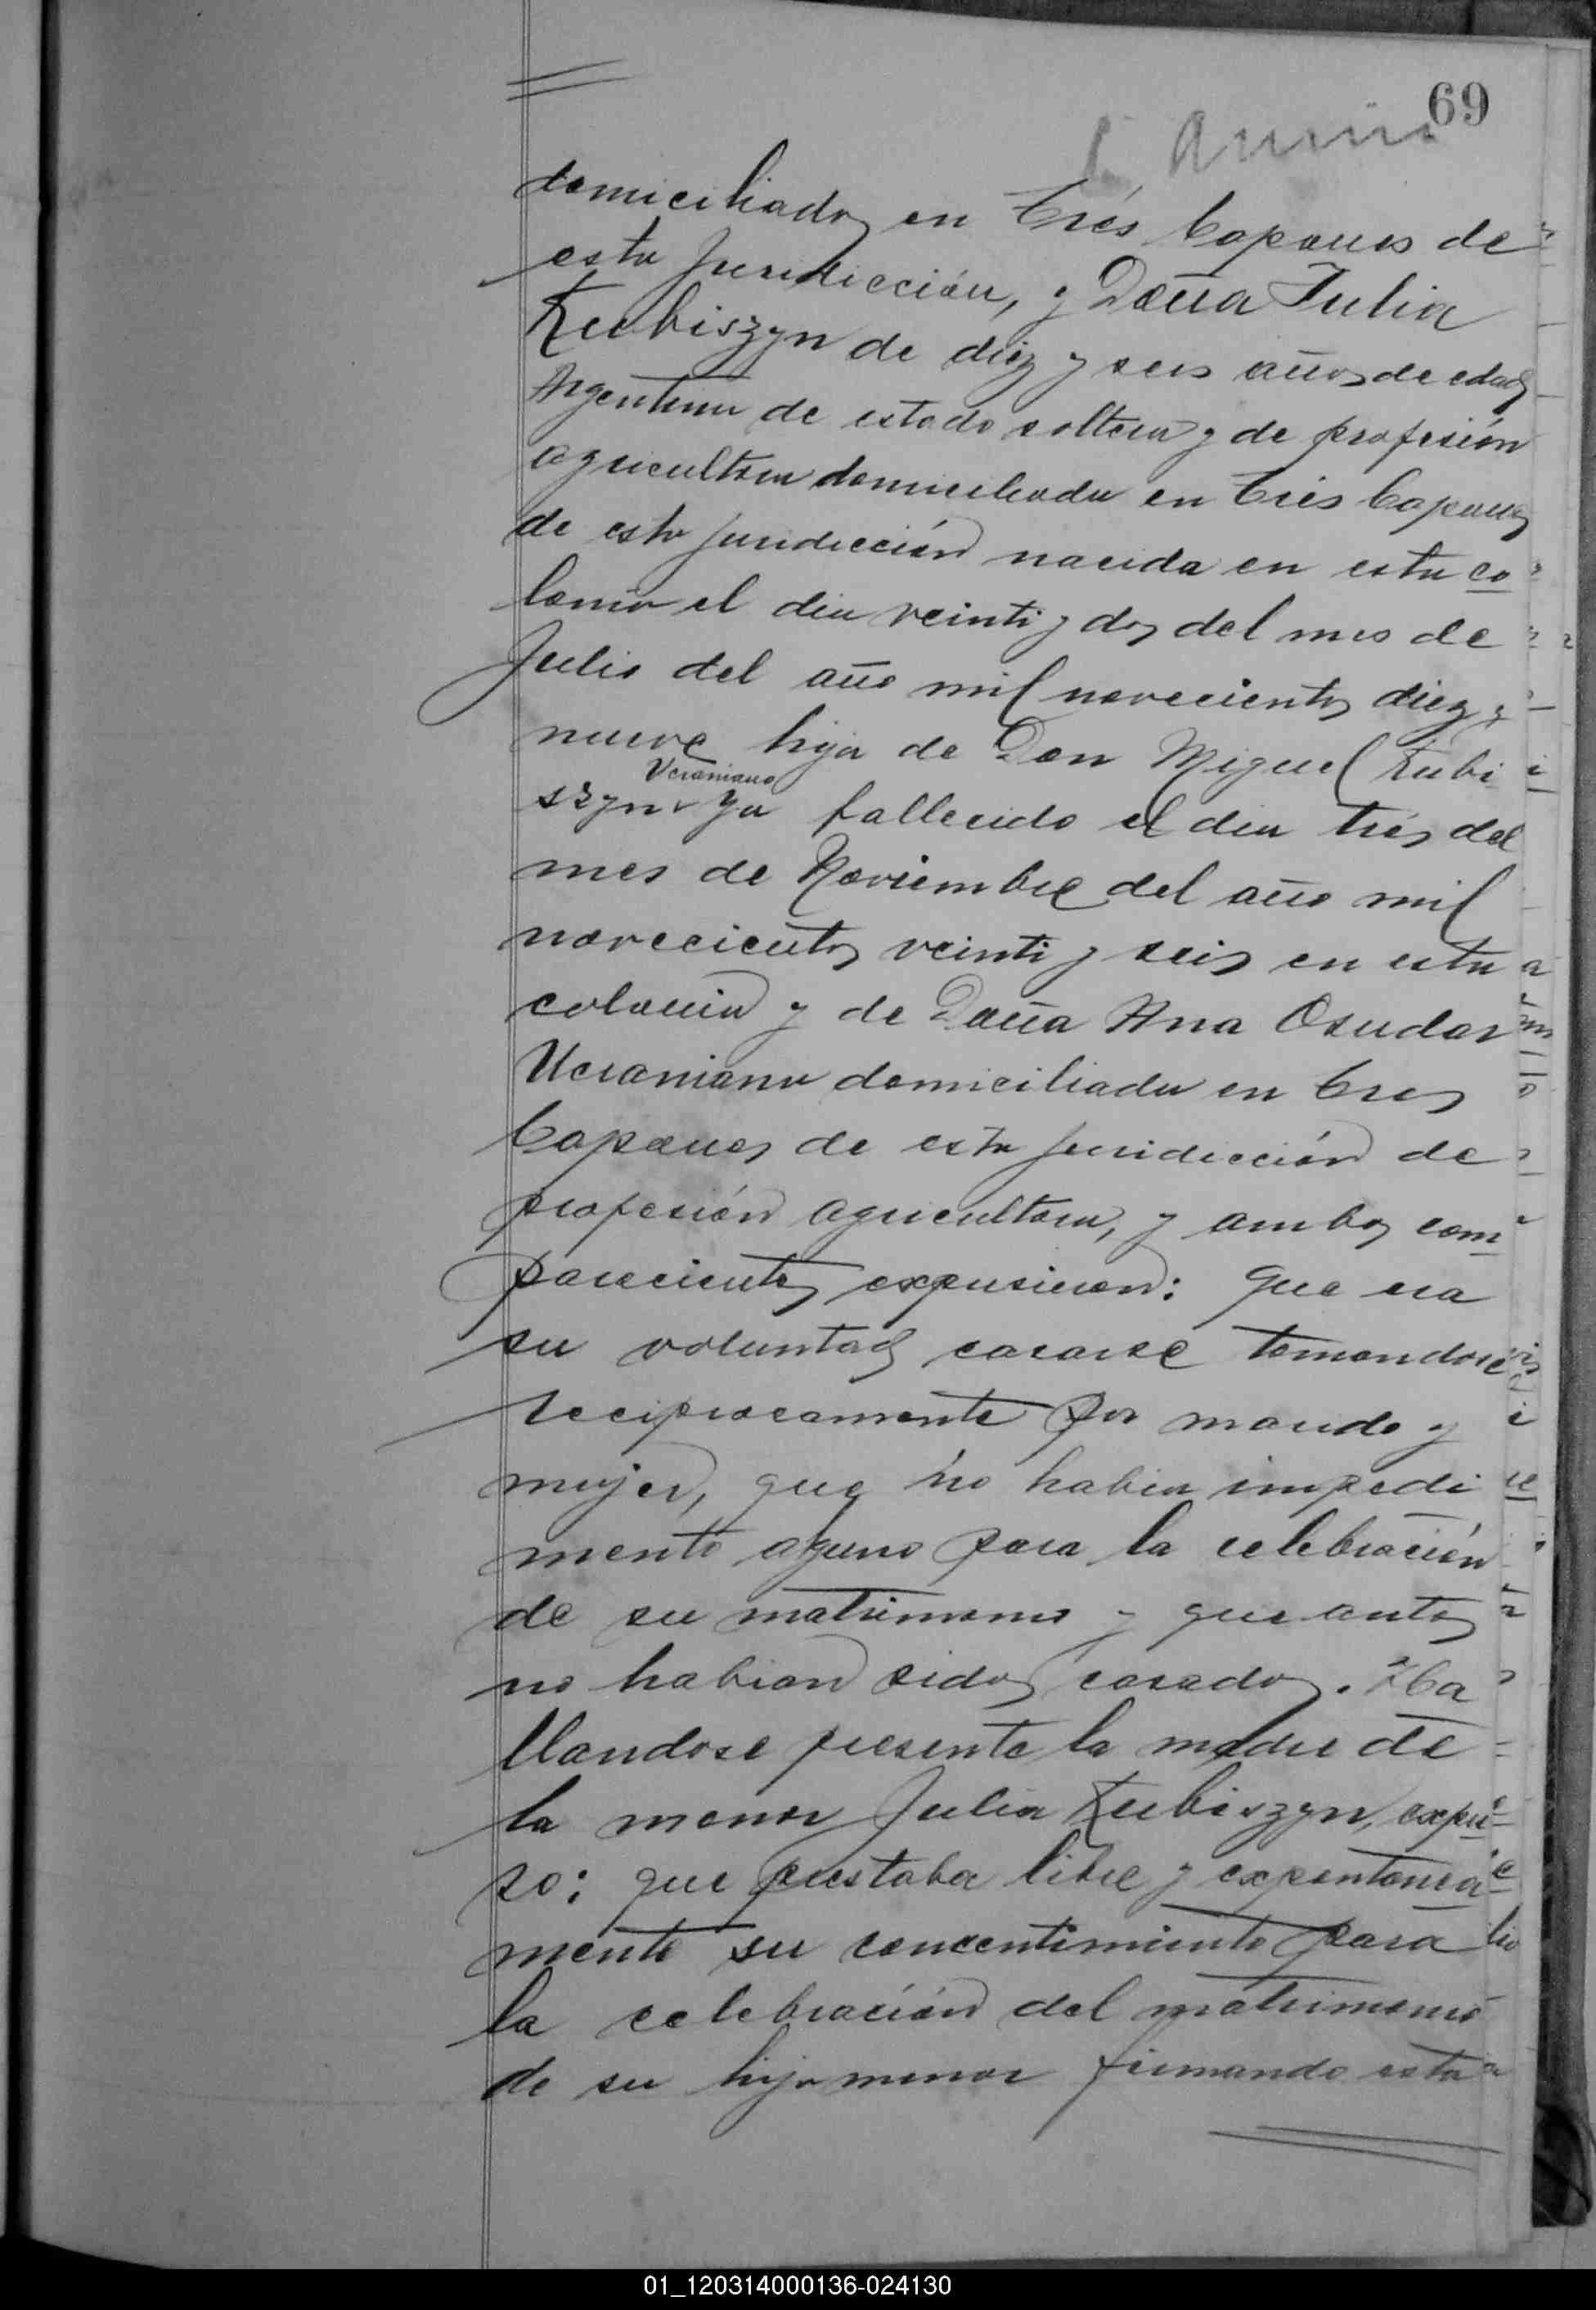 69
domiciliados en Trés Capones de
esta juridicción, y Doña Julia
Kubiszyn de diez y seis años de edad
Argentina de estado soltera y de profesión
agricultora domiciliada en Trés Capones
de esta juridicción nacida en esta co
lonia el dia veinti y dos del mes de
Julio del año mil novecientos diez y
nueve hija de Don Miguel Kubi
Ucraniano
szyn ya fallecido el dia trés del
mes de Noviembre del año mil
novecientos veinti y seis en esta
colonia y de Doña Ana Osudar
Ucraniana domiciliada en Tres
Capones de esta juridicción de
profesión agricultora, y ambos com
parecientes expusieron: que era
su voluntad casarse tomandose
reciprocamente por marido y
mujer, que no habia impedi
mento alguno para la celebración
de su matrimonio y que antes
no habian sidos casados. Ha
llandose presente la madre de
la menor Julia Kubiszyn, expu
so: que prestaba libre y expontanea
mente su concentimiento para
la celebración del matrimonio
de su hija menor firmando esta
01_120314000136-024130